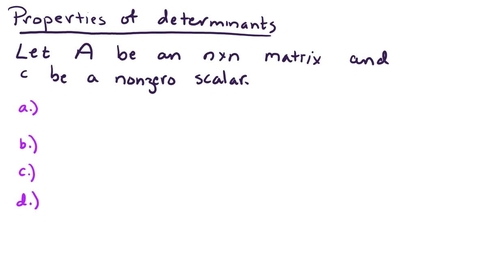 Properties of determinants
Let A be an nxn matrix and
c be a nonzero scalar.
a.)
b.)
c.)
d.)